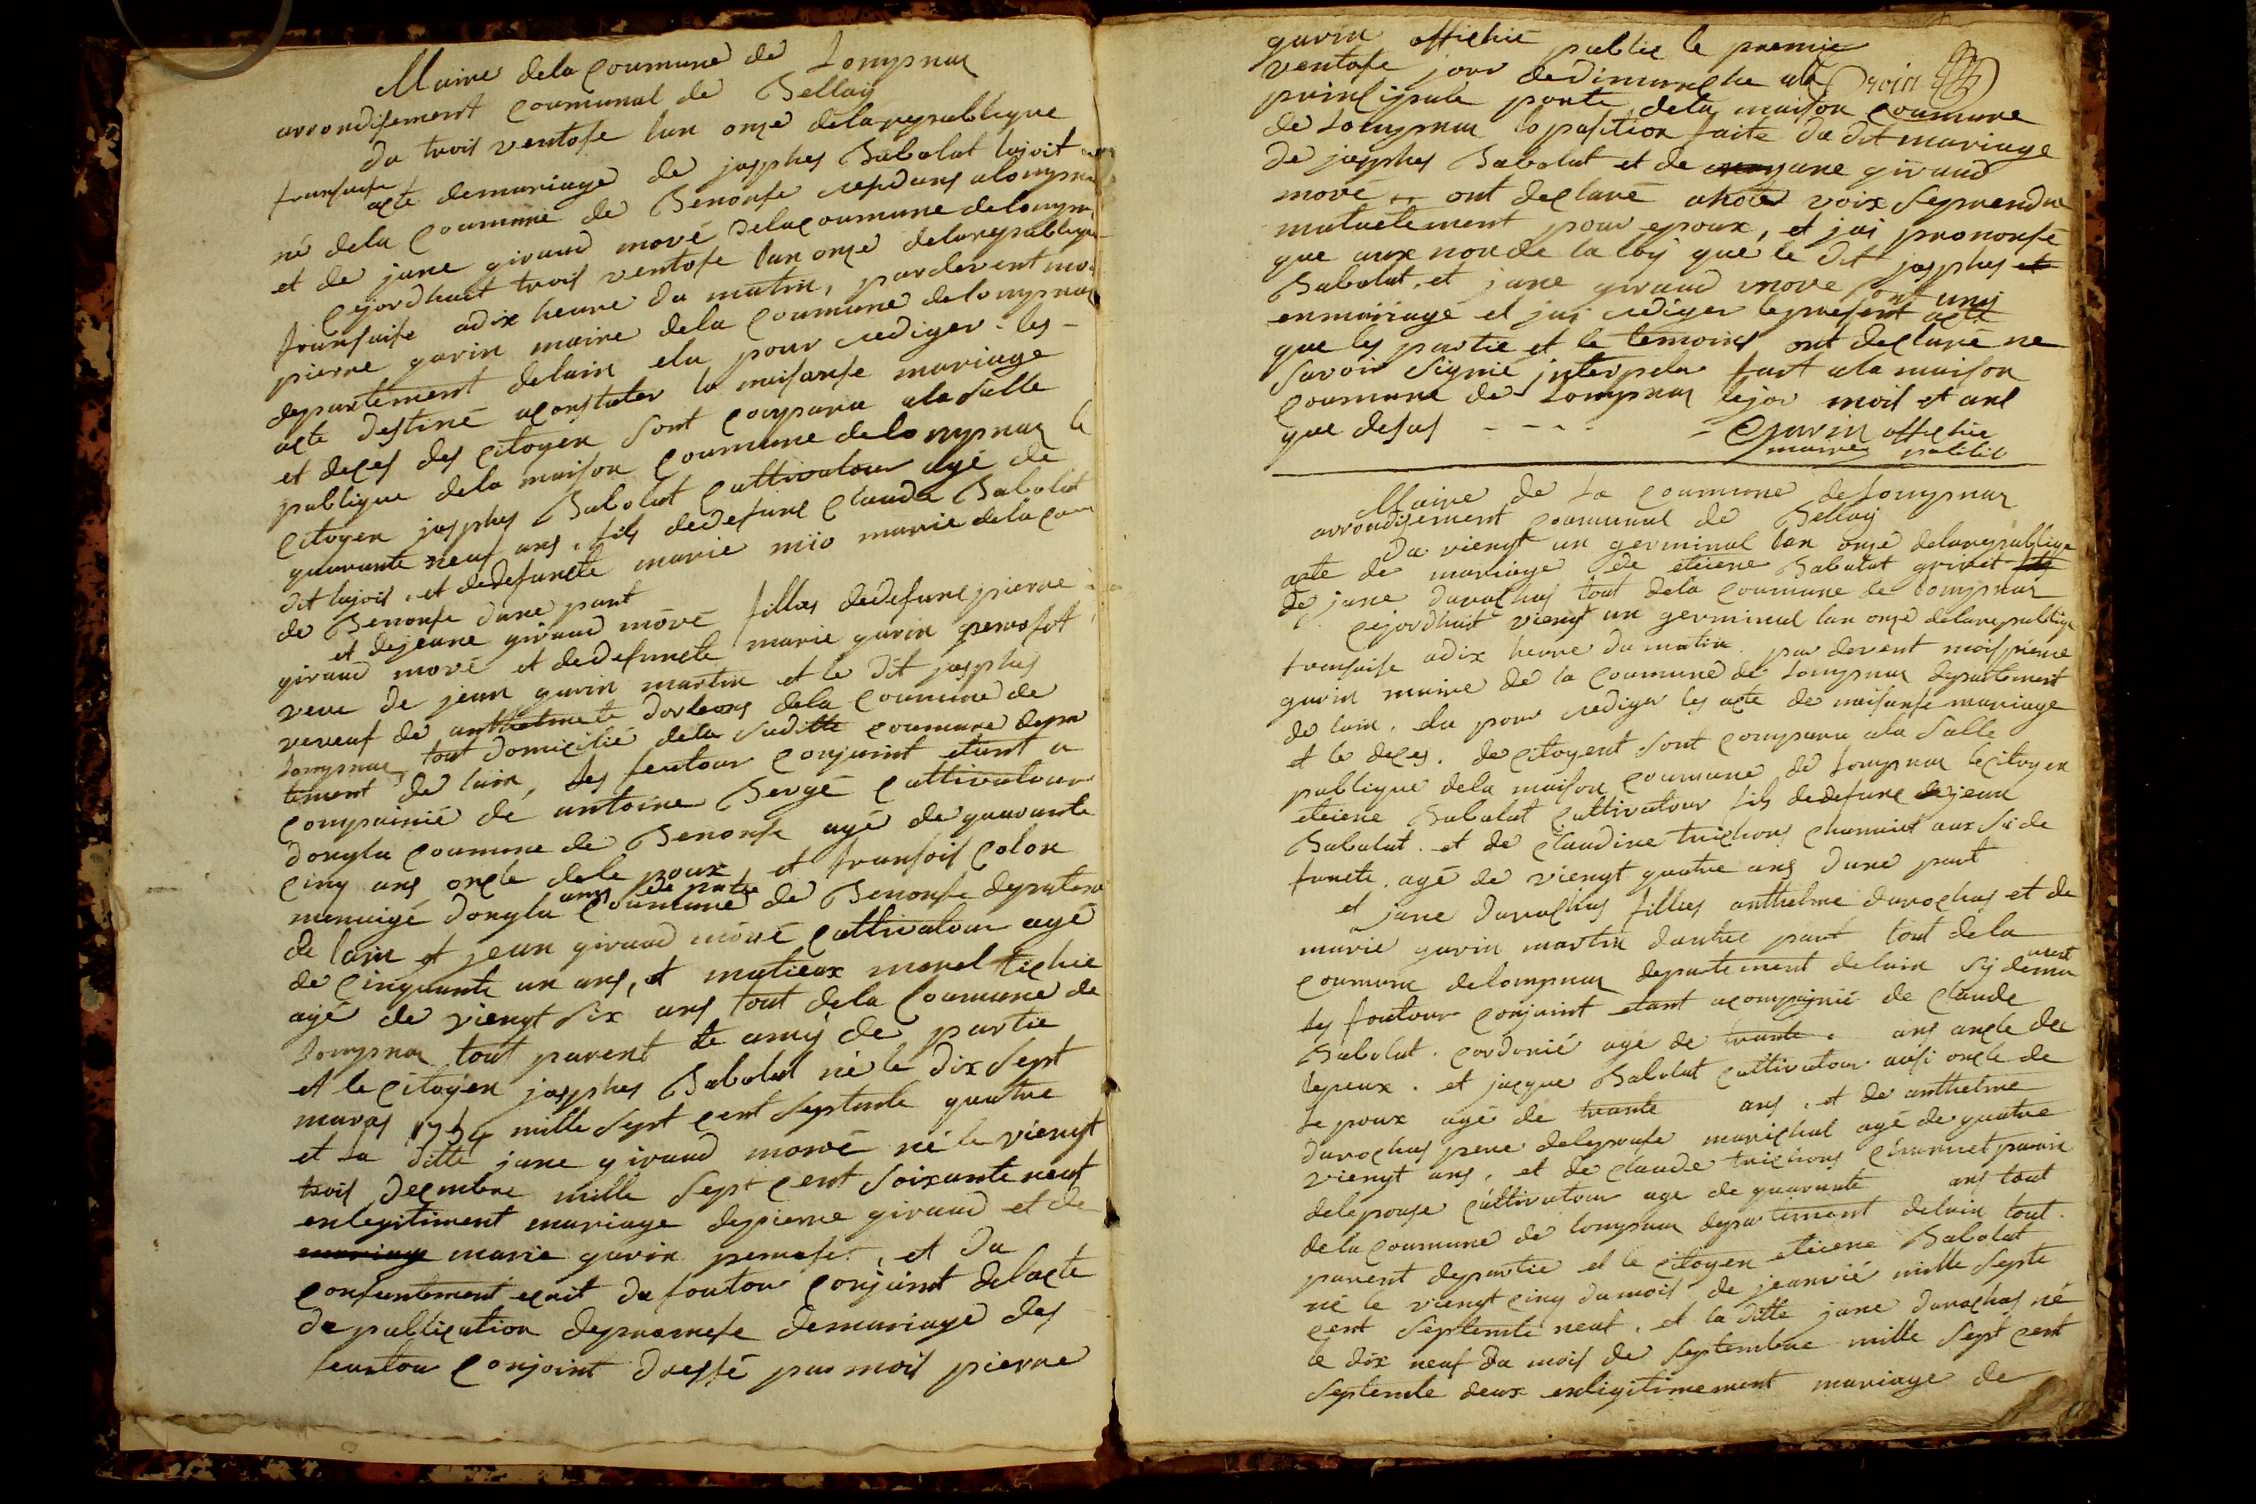 Maire dela Coumune de Lompnaz
arrondisement Coumunal de Bellay
du trois ventose lan onze dela republique
fransaise
acte demariage de josphes Babolat lajoit
né dela Coumune de Benonse residans a lompnaz
et de jane giraud moré dela coumune delompn
Cejordhuit trois ventose lan onze dela republique
fransaise adix heure du matin, pardevent moi
pierre gavin maire dela Coumune de lompnaz
departement delain elu pour rediger les
acte destiné a constater la naisanse mariage
et deces des citoyen sont comparu ala salle
publique dela maison Coumune de lompnaz le
Citoyen josphes Babolat Cultivatour agé de
quarante neuf ans, fils dedefunt Claude Babolat
dit lajois, et dedefuncte marie mio marié dela cou
de Benonse dune part
et dejeane giraud moré filles dedefunt pierre
giraud moré et dedefuncte marie gavin perroset
veve de jean gavin martin et le dit josphes
veveuf de anthelmete dorleans dela Coumune de
lompnaz, tout domicilié dela suditte coumune depar
tement de lain, les feutour conjuint etant a
Compainié de antoine Bergé Cultivatour
donyla Coumune de Benonse agé de quarante
cinq ans oncle dele poux, et fransois Colon
ami de partie
menuigé donyla Coumune de Benonse departeme
de lain et jean giraud moré Cultivatour agé
de Cinquante un ans, et matieux morel tichie
agé de vienyt six ans tout dela Coumune de
lompnaz tout parent et amy de partie
et le Citoyen josphes Babolat né le dix sept
maras 1754 mille sept cent septente quatre
et la ditte jane giraud moré né le vienyt
trois decembre mille sept cent soixante neuf
enlegitiment mariage depierre giraud et de
mariage marie gavin peroset, et du
consentement ecrit du foutour conjuint delacte
de publication depromese demariage des
feutour conjoint dressé par mois pierre
gavin offichié public le premie
ventose jour dedimanche ala
principale porte dela maison coumune
de lompnaz loposition faite du dit mariage
de josphes Babolat et de jane giraud
moré ont declaré a hote voix seprendre
mutuelement pour epoux, et jai prononsé
que aux nonde la loy que le dit josphes et
Babolat, et jane giraud moré sont unij
enmariage et jai rediger lepresent acte
que les partie et le temoins ont declaré ne
savoir signié interpela fait ala maison
Coumune de lompnaz lejor mois et ans
que desus - - - - Gavin offichie
maire public
Maire de la Coumune de lompnaz
arrondisement Coumunal de Bellay
du vienyt un germinal lan onze delarepublique
acte de mariage de etiene Babolat grivet
de jane durochas tout dela Coumune de lompnaz
Cejordhuit vienyt un germinal lan onze delarepublique
fransaise adix heure du matin par devent mois pierre
gavin maire de la Coumune de lompnaz departement
de lain, elu pour rediger les acte de naisanse mariage
et le deces, de citoyent sont comparu ala salle
publique dela maison coumune de lompnaz le citoyen
etiene Babolat Cultivatour fils dedefunt de jean
Babolat, et de Claudine trichons charmint aussi de
functe, agé de vienyt quatre ans dune part
et jane durochas filles anthelme durochas et de
marie gavin martin dautre part tout dela
coumune delompnaz departement delain sy demu
rant
les foutour conjuint etant acompainié de Claude
Babolat, cordonié agé de trante ans oncle de
lepeux, et jacque Babolat Cultivatour ausi oncle de
le poux agé de trante ans, et de anthelme
durochas pere deleponse marichal agé de quatre
vienyt ans, et de Claude trichons charmet parain
delepouse Cultivatour age de quarante ans tout
dela coumune de lompnaz departement delain tout
parent departie et le citoyen etiene Babolat
né le vienyt cinq dumois de jeanvié mille septe
cent septente neuf, et la ditte jane durochas né
le dix neuf du mois de septembre mille sept cent
septente deux enligitimement mariage de